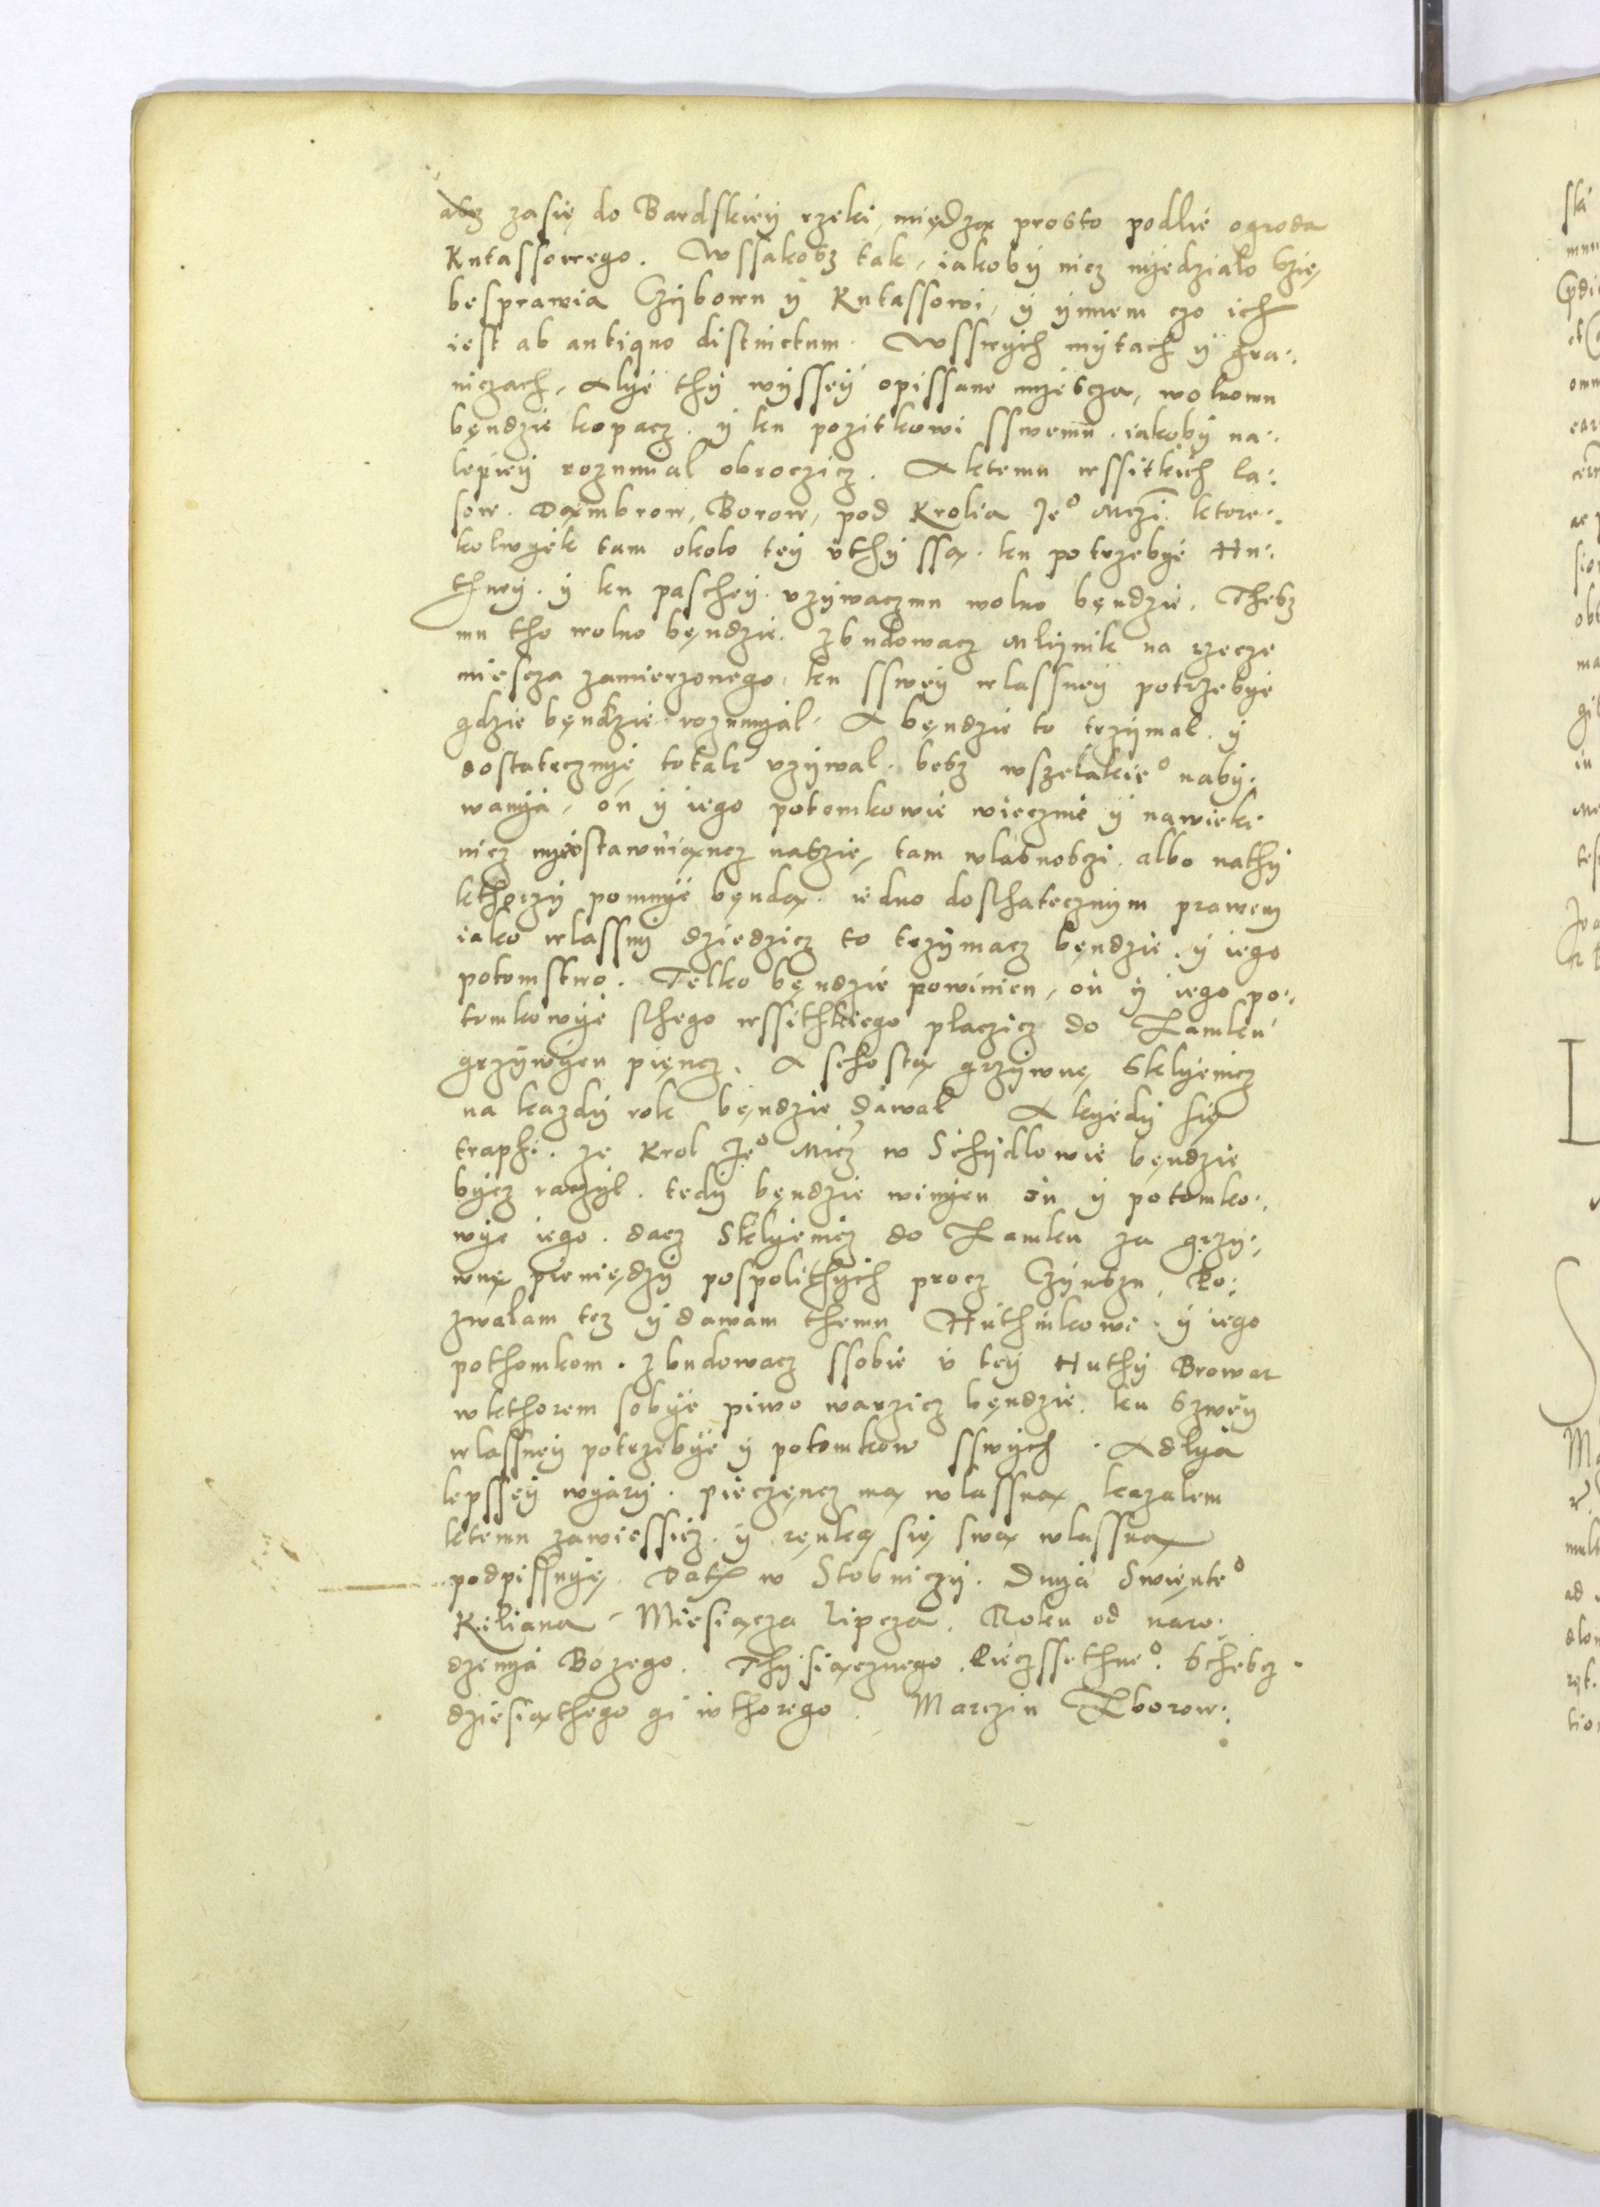 asz zasię do Bardskiey rzeki, międzą prosto podlie ogroda
Kutassowego. Wssakosz tak, iakoby nicz nyedzialo szię
besprawia Czybowu y Kutassowi, y ynnem czo ich
iest ab antiquo distnictum. Wsswych mytach y gra:
niczach, Alye thy wyssey opissane myescza, wolnomu
będzie kopacz. y ku pozitkowi sswemu. iakoby na:
lepiey rozumial obroczicz. Aktemu wssitkich la:
sow. Dąmbrow, Borow, pod Krolia Je⁰ Mczi. ktore:
kolwyek tam okolo tey uthy ssą. ku potrzebye Hu:
thney. y ku paschey. vzywaczmu wolno bęndzie. Thesz
mu tho wolno bęndzie. zbudowacz Mlynik na rzecze
miescza zamierzonego, ku sswey wlassney potrzebye
gdzie bęndzie rozumyal. A bęndzie to trzymal. y
dostatecznye, totak vzywal. besz wszelakie⁰ naby:
wanya, on y iego potomkowie wiecznie y nawieki
nicz nyeostawuiąncz naszię, tam wlasnosczi. albo nathy
kthorzy pomnye bendą. iedno dosthatecznym prawem
iako wlassny dziedzicz to trzymacz bęndzie. y iego
potomstwo. Telko bęndzie powinien, on y iego po:
tomkowye sthego wssithkiego placzicz do Zamku
grzywyen pięncz. A schostą grzywnę Sklyenicz
na kazdy rok bęndzie dawal A kyedy się
traphi. ze Krol Je⁰ Micz w Schydlowie bęndzie
bycz raczyl. tedy bęndzie winyen on y potomko:
wye iego. dacz Sklyenicz do Zamku za grzy:
wnę pieniędzy pospolithych procz Czynszu, Ro:
zwalam tez y dawam themu Huthnikowi. y iego
pothomkom. zbudowacz ssobie u tey Huthy Browar
wkthorem sobye piwo warzicz bęndzie. ku szwey
wlassney potrzebye y potomkow sswych. Adlya
lepssey wyary. pieczęncz mą wlassną kazalem
ktemu zawiessicz. y ręnką się swą wlassną
podpissuyę. Dat w Stobniczy. Dnya Swięnte⁰
Kiliana Miesiącza Lipcza. Roku od naro:
dzenya Bozego. Thysiącznego. Pieczssethne⁰. Schescz.
dziesiąthego gi wthorego. Marczin Zborow: